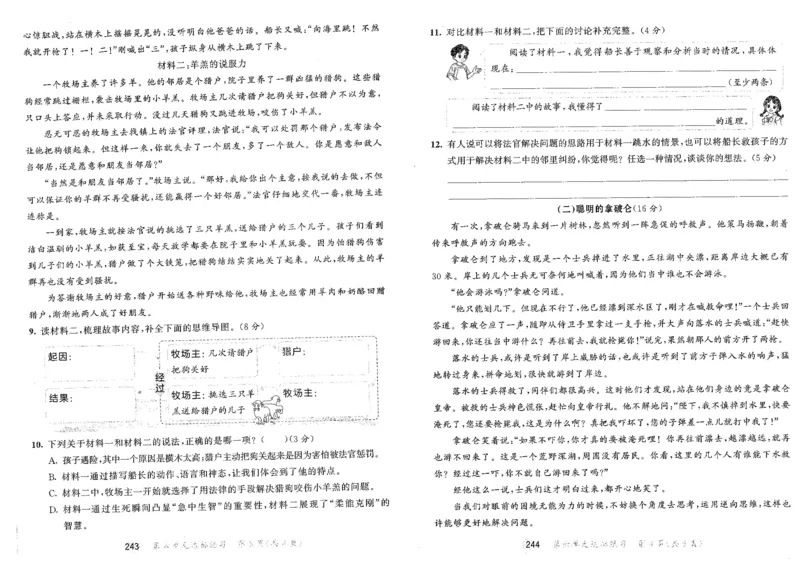 心惊胆战,站在横木上摇摇晃晃的,没听明白他爸爸的话。船长又喊:“向海里跳!不然
我就开枪了!一!二!”刚喊出“三”,孩子纵身从横木上跳了下来。
材料二:羊羔的说服力
一个牧场主养了许多羊。他的邻居是个猎户,院子里养了一群凶猛的猎狗。这些猎
狗经常跳过栅栏,袭击牧场里的小羊羔。牧场主几次请猎户把狗关好,但猎户不以为意,
只口头上答应,并未采取行动。没过几天猎狗又跳进牧场,咬伤了小羊羔。
忍无可忍的牧场主去找镇上的法官评理,法官说:“我可以处罚那个猎户,发布法令
让他把狗锁起来。但这样一来,你就失去了一个朋友,多了一个敌人。你是愿意和敌人
当邻居,还是愿意和朋友当邻居?”
“当然是和朋友当邻居了。”牧场主说。“那好,我给你出个主意,按我说的去做,不但
可以保证你的羊群不再受骚扰,还能赢得一个好邻居。”法官仔细地交代一番,牧场主连
连称是。
一到家,牧场主就按法官说的挑选了三只羊羔,送给猎户的三个儿子。孩子们看到
洁白温驯的小羊羔,如获至宝,每天放学都要在院子里和小羊羔玩耍。因为怕猎狗伤害
到儿子们的小羊羔,猎户做了个大铁笼,把猎狗结结实实地关了起来。从此,牧场主的羊
群再也没有受到骚扰。
为答谢牧场主的好意,猎户开始送各种野味给他,牧场主也经常用羊肉和奶酪回赠
猎户,渐渐地两人成了好朋友。
9. 读材料二,梳理故事内容,补全下面的思维导图。(8分)
起因:
经过
牧场主:几次请猎户
把狗关好
猎户:
结果:
牧场主:挑选三只羊
羔送给猎户的儿子
牧场主:
10. 下列关于材料一和材料二的说法,正确的是哪一项?( )(3分)
A. 孩子遇险,其中一个原因是横木太高;猎户主动把狗关起来是因为害怕被法官惩罚。
B. 材料一通过描写船长的动作、语言和神态,让我们体会到了他的特点。
C. 材料二中,牧场主一开始就选择了用法律的手段解决猎狗咬伤小羊羔的问题。
D. 材料一通过生死瞬间凸显“急中生智”的重要性,材料二展现了“柔能克刚”的
智慧。
243
11. 对比材料一和材料二,把下面的讨论补充完整。(4分)
阅读了材料一,我觉得船长善于观察和分析当时的情况,具体体
现在:
(至少两条)
阅读了材料二中的故事,我懂得了
的道理。
12. 有人说可以将法官解决问题的思路用于材料一跳水的情景,也可以将船长救孩子的方
式用于解决材料二中的邻里纠纷,你觉得呢?任选一种情况,谈谈你的想法。(5分)
(二)聪明的拿破仑(16分)
有一次,拿破仑骑马来到一片树林,忽然听到一阵急促的呼救声。他策马扬鞭,朝着
传来呼救声的方向跑去。
拿破仑到了地方,发现是一个士兵掉进了水里,正往湖中央漂,距离岸边大概已有
30米。岸上的几个士兵无可奈何地叫喊着,因为他们当中谁也不会游泳。
“他会游泳吗?”拿破仑问道。
“他只能划几下。但现在不行了,他已经漂到深水区了,刚才在喊救命哩!”一个士兵回
答道。拿破仑应了一声,随即从侍卫手里拿过一支手枪,并大声向落水的士兵喊道:“赶快
游回来,你还往当中游什么?再往前去,我就枪毙你!”说完,果然朝那人的前方开了两枪。
落水的士兵,或许是听到了岸上威胁的话,也或许是听到了前方子弹入水的响声,猛
地转过身来,拼命地划,很快就游到了岸边。
落水的士兵得救了,同伴们都很高兴。这时他们才发现,站在他们身边的竟是拿破仑
皇帝。被救的士兵神色慌张,赶忙向皇帝行礼。他不解地问:“陛下,我不慎掉到水里,快要
淹死了,您还要枪毙我,这是为什么啊?真把我吓坏了,您的子弹差一点儿就打中我了!”
拿破仑笑着说:“如果不吓你,你才真的要被淹死哩!你再往前漂去,越漂越远,就再
也游不回来了。这是一个荒野深湖,周围没有居民。你看,这里的几个人有谁能下水救
你?经过这一吓,你不就自己游回来了吗?”
经他这么一说,士兵们这才明白过来,都开心地笑了。
当我们对眼前的困境无能为力的时候,不妨换个角度去思考,运用逆向思维,这样也
许能够更好地解决问题。
244